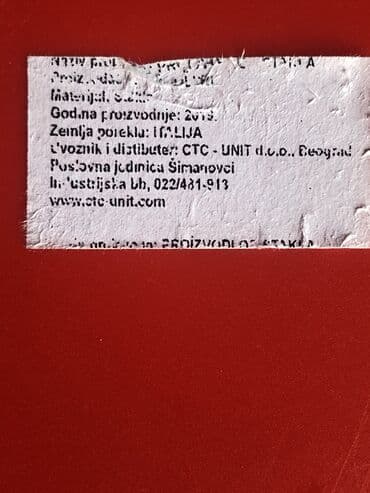 Naziv
Proizvođač:
Materijal: Staklo
Godina proizvodnje: 2019.
Zemlja porekla: ITALIJA
Uvoznik i distibuter: CTC - UNIT d.o.o., Beograd
Poslovna jedinica Šimanovci
Industrijska bb, 022/481-913
www.ctc-unit.com
PROIZVODI OD STAKLA